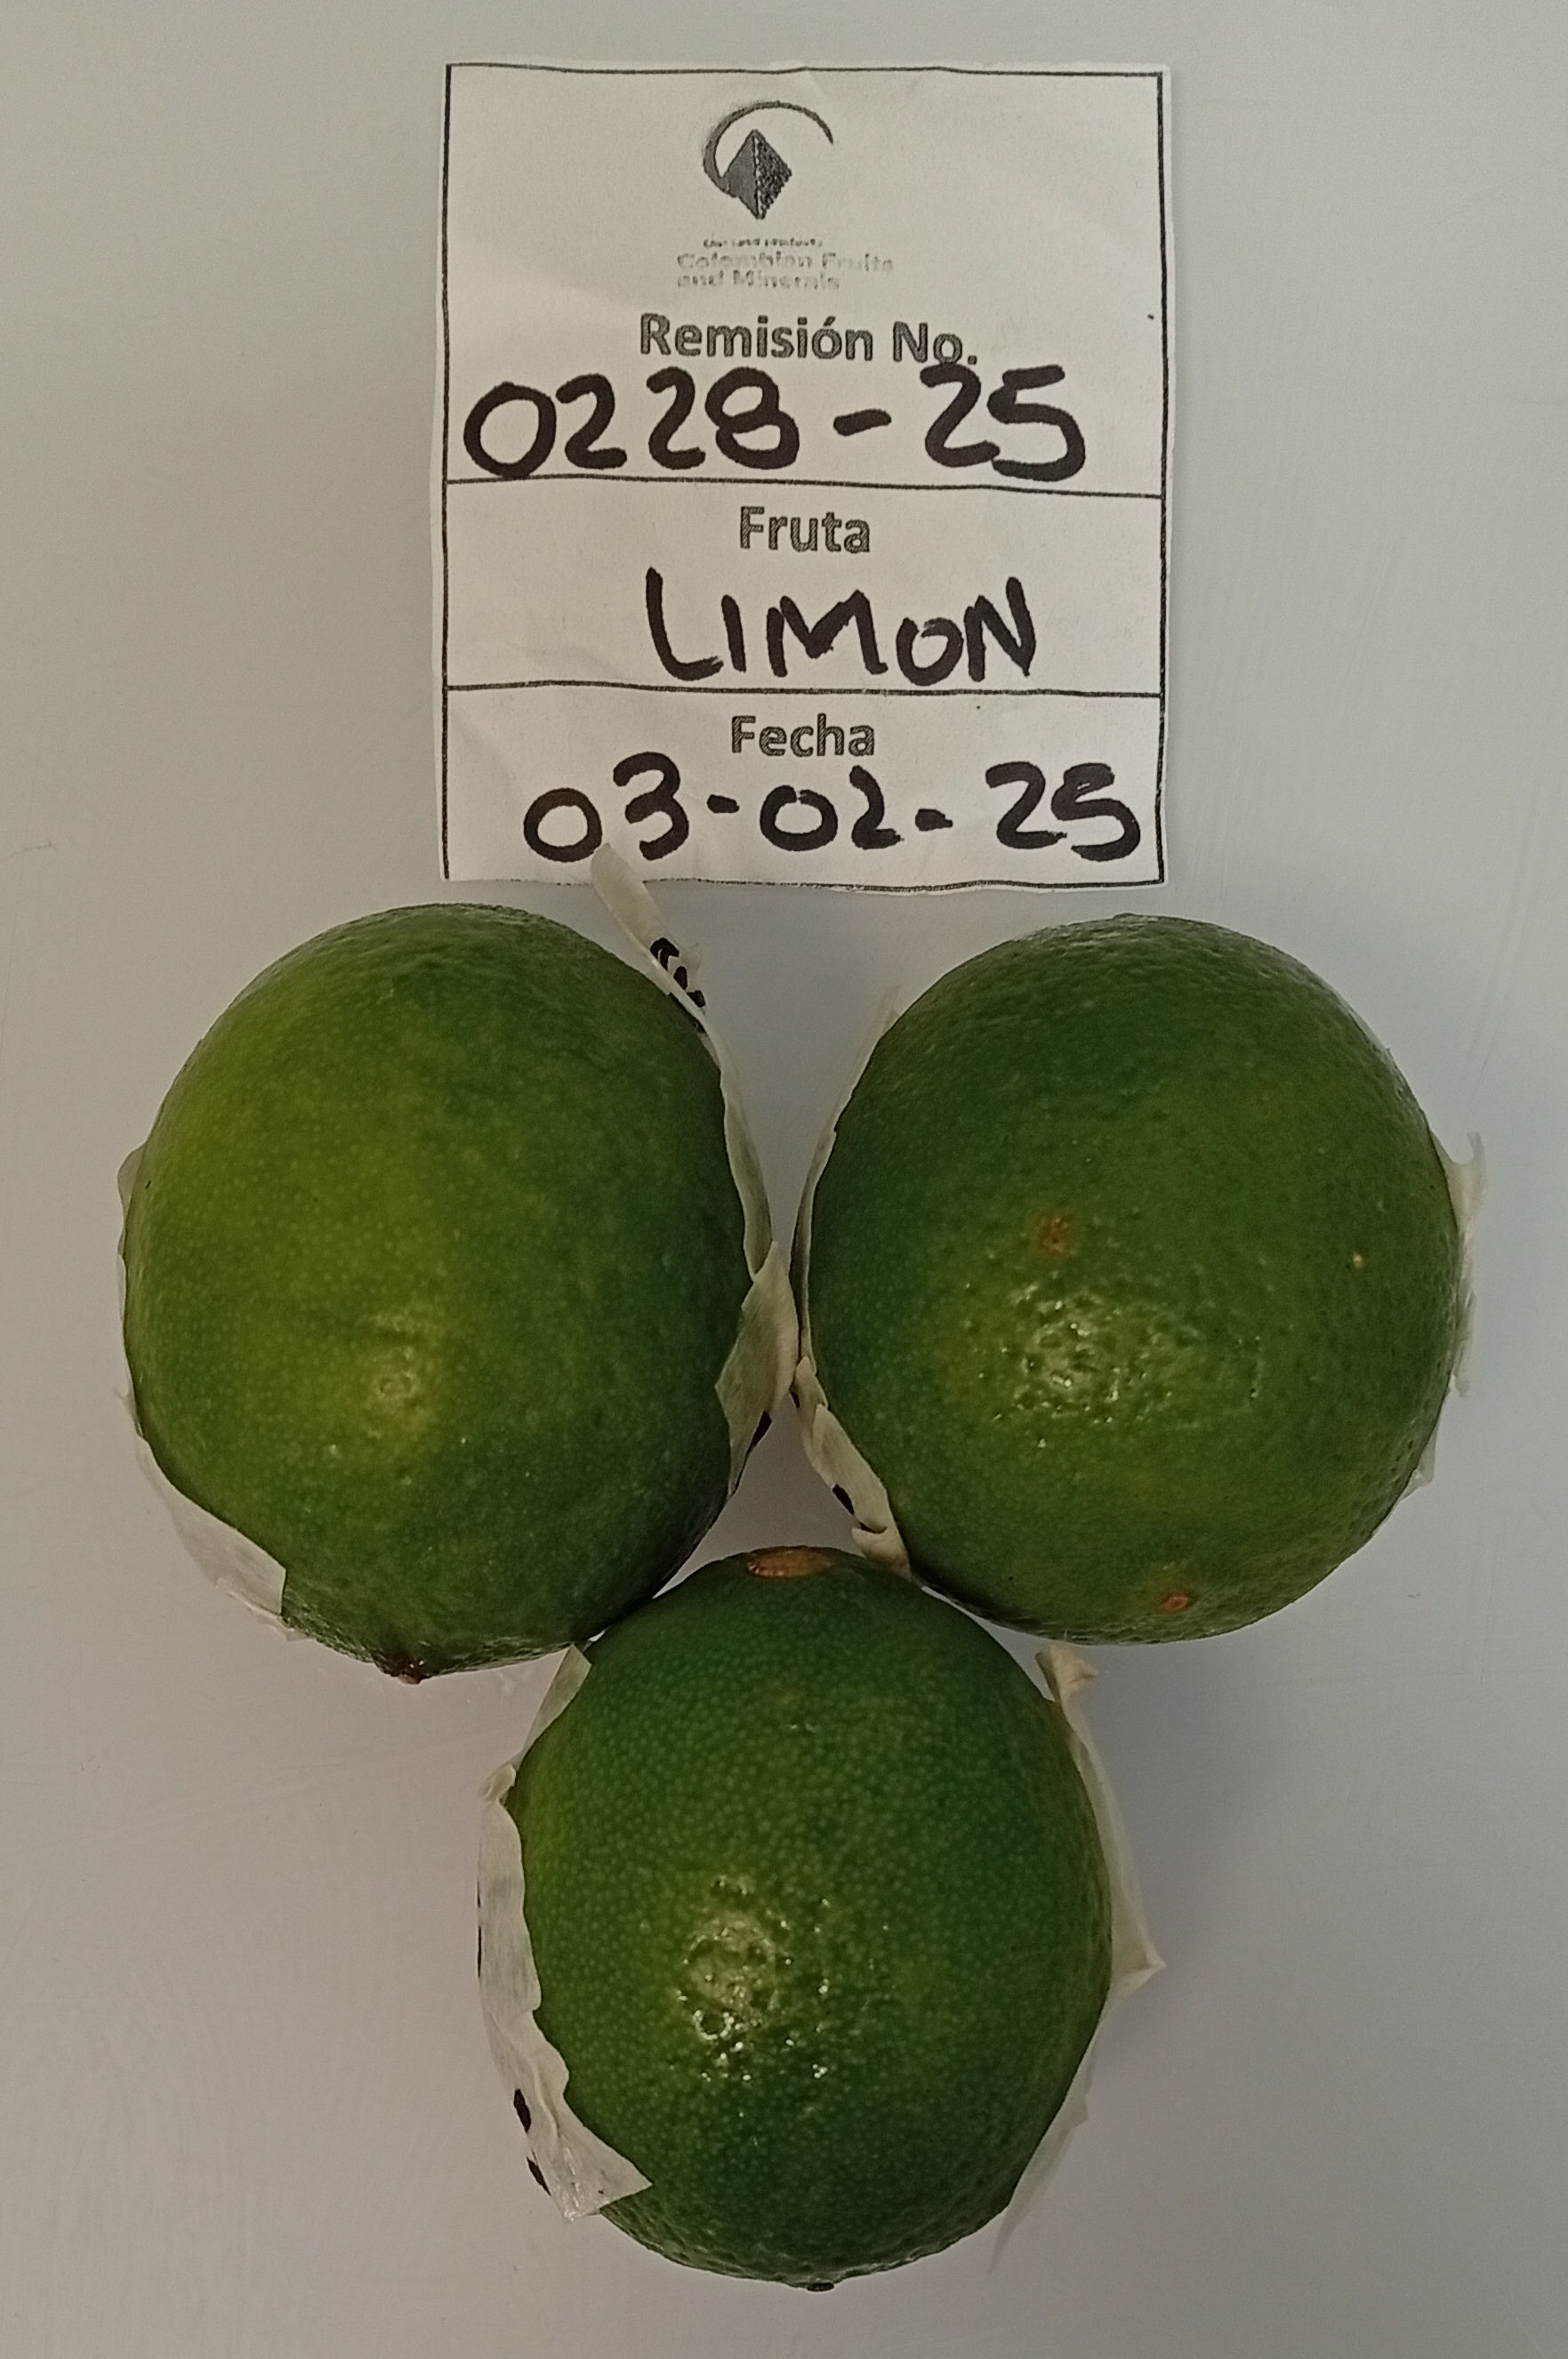 Colombian Fruits
and Minerals
Remisión No.
0228-25
Fruta
LIMON
Fecha
03-02-25